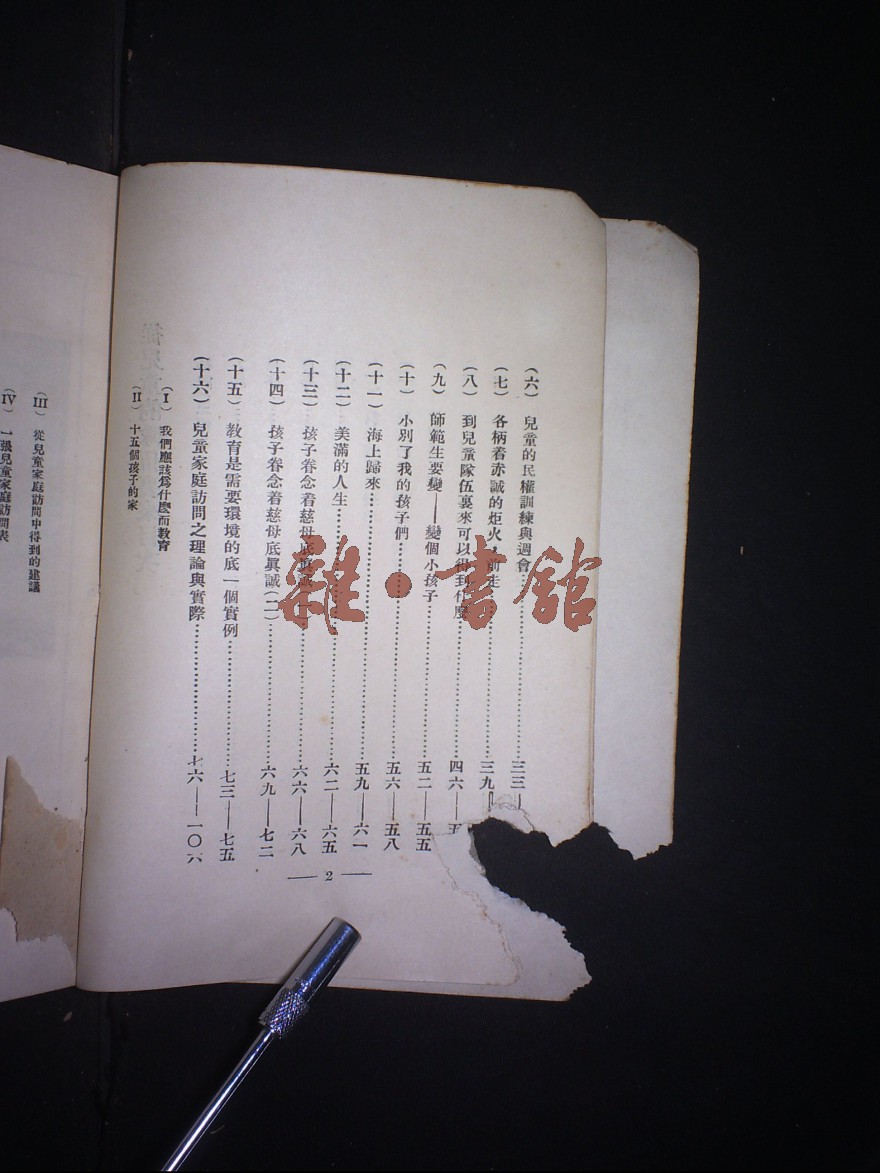 (六) 兒童的民權訓練與週會…………三三—
(七) 各柄着赤誠的炬火，前走…………三九—
(八) 到兒童隊伍裏來可以得到什麼…………四六—五
(九) 師範生要變——變個小孩子…………五二—五五
(十) 小別了我的孩子們…………五六—五八
(十一) 海上歸來…………五九—六一
(十二) 美滿的人生…………六二—六五
(十三) 孩子眷念着慈母底眞誠(一)…………六六—六八
(十四) 孩子眷念着慈母底眞誠(二)…………六九—七二
(十五) 教育是需要環境的底一個實例…………七三—七五
(十六) 兒童家庭訪問之理論與實際…………七六—一〇六
(I) 我們應該爲什麼而教育
(II) 十五個孩子的家
— 2 —
(III) 從兒童家庭訪問中得到的建議
(IV) 一張兒童家庭訪問表
雜·書館